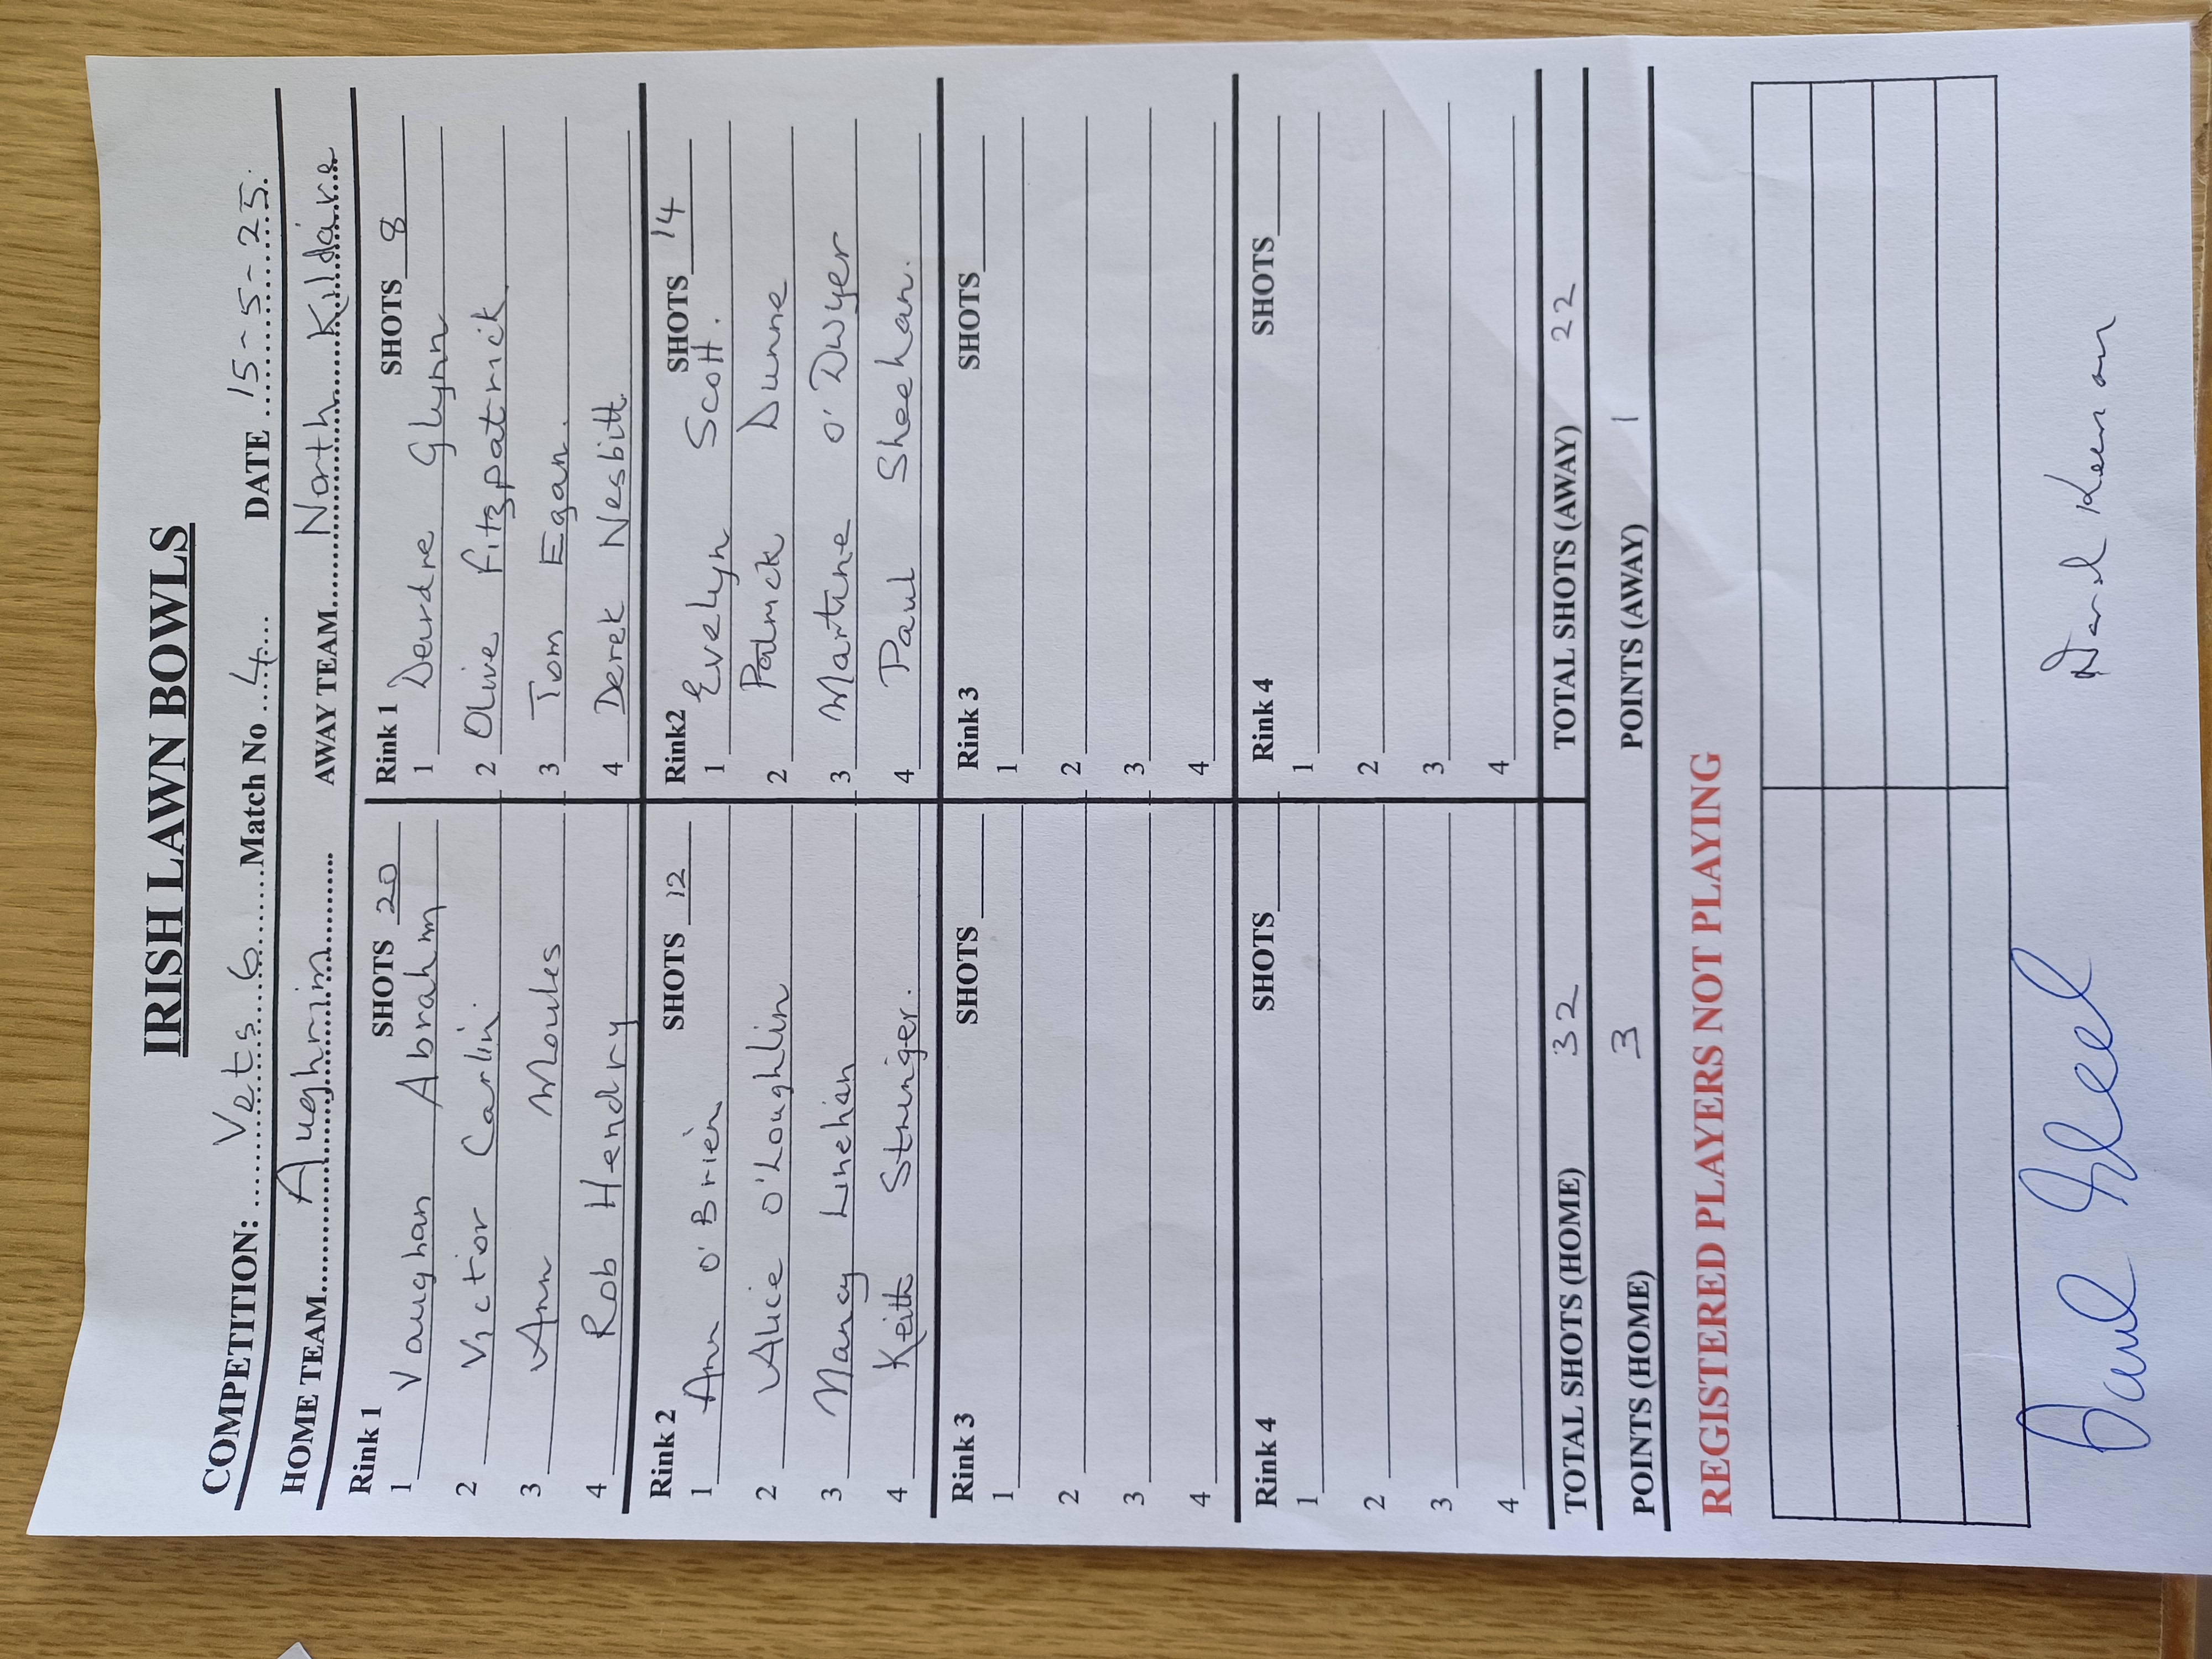 IRISH LAWN BOWLS
COMPETITION: Vets 6 Match No 4 DATE 15-5-25.
HOME TEAM Aughrim AWAY TEAM North Kildare
Rink 1 SHOTS 20 Rink 1 SHOTS 8
1 Vaughan Abrahm 1 Deirdre Glynn
2 Victor Carlin. 2 Olive Fitzpatrick
3 Ann Moules 3 Tom Egan.
4 Rob Hendry 4 Derek Nesbitt
Rink 2 SHOTS 12 Rink2 SHOTS 14
1 Ann O'Brien 1 Evelyn Scott.
2 Alice O'Loughlin 2 Patrick Dunne
3 Nancy Linehan 3 Martine O'Dwyer
4 Keith Stringer. 4 Paul Sheehan.
Rink 3 SHOTS Rink 3 SHOTS
1 1
2 2
3 3
4 4
Rink 4 SHOTS Rink 4 SHOTS
1 1
2 2
3 3
4 4
TOTAL SHOTS (HOME) 32 TOTAL SHOTS (AWAY) 22
POINTS (HOME) 3 POINTS (AWAY) 1
REGISTERED PLAYERS NOT PLAYING